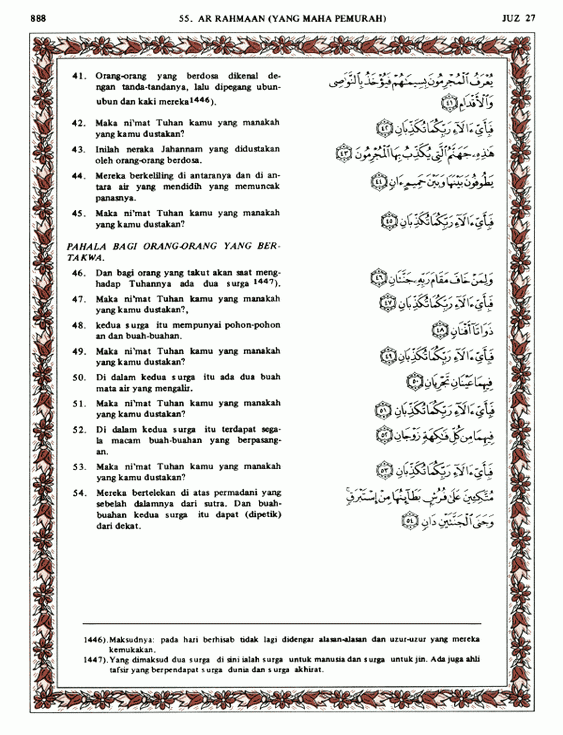 888
55. AR RAHMAAN (YANG MAHA PEMURAH)
JUZ 27
41. Orang-orang yang berdosa dikenal de-
ngan tanda-tandanya, lalu dipegang ubun-
ubun dan kaki mereka1446).
يُعْرَفُ ٱلْمُجْرِمُونَ بِسِيمَٰهُمْ فَيُؤْخَذُ بِٱلنَّوَٰصِى
وَٱلْأَقْدَامِ ٤١
42. Maka ni'mat Tuhan kamu yang manakah
yang kamu dustakan?
فَبِأَىِّ ءَالَآءِ رَبِّكُمَا تُكَذِّبَانِ ٤٢
43. Inilah neraka Jahannam yang didustakan
oleh orang-orang berdosa.
هَٰذِهِۦ جَهَنَّمُ ٱلَّتِى يُكَذِّبُ بِهَا ٱلْمُجْرِمُونَ ٤٣
44. Mereka berkeliling di antaranya dan di an-
tara air yang mendidih yang memuncak
panasnya.
يَطُوفُونَ بَيْنَهَا وَبَيْنَ حَمِيمٍ ءَانٍ ٤٤
45. Maka ni'mat Tuhan kamu yang manakah
yang kamu dustakan?
فَبِأَىِّ ءَالَآءِ رَبِّكُمَا تُكَذِّبَانِ ٤٥
PAHALA BAGI ORANG-ORANG YANG BER-
TAKWA.
46. Dan bagi orang yang takut akan saat meng-
hadap Tuhannya ada dua surga 1447).
وَلِمَنْ خَافَ مَقَامَ رَبِّهِۦ جَنَّتَانِ ٤٦
47. Maka ni'mat Tuhan kamu yang manakah
yang kamu dustakan?,
فَبِأَىِّ ءَالَآءِ رَبِّكُمَا تُكَذِّبَانِ ٤٧
48. kedua surga itu mempunyai pohon-pohon
an dan buah-buahan.
ذَوَاتَآ أَفْنَانٍ ٤٨
49. Maka ni'mat Tuhan kamu yang manakah
yang kamu dustakan?
فَبِأَىِّ ءَالَآءِ رَبِّكُمَا تُكَذِّبَانِ ٤٩
50. Di dalam kedua surga itu ada dua buah
mata air yang mengalir.
فِيهِمَا عَيْنَانِ تَجْرِيَانِ ٥٠
51. Maka ni'mat Tuhan kamu yang manakah
yang kamu dustakan?
فَبِأَىِّ ءَالَآءِ رَبِّكُمَا تُكَذِّبَانِ ٥١
52. Di dalam kedua surga itu terdapat sega-
la macam buah-buahan yang berpasang-
an.
فِيهِمَا مِن كُلِّ فَٰكِهَةٍ زَوْجَانِ ٥٢
53. Maka ni'mat Tuhan kamu yang manakah
yang kamu dustakan?
فَبِأَىِّ ءَالَآءِ رَبِّكُمَا تُكَذِّبَانِ ٥٣
54. Mereka bertelekan di atas permadani yang
sebelah dalamnya dari sutra. Dan buah-
buahan kedua surga itu dapat (dipetik)
dari dekat.
مُتَّكِـِٔينَ عَلَىٰ فُرُشٍۭ بَطَآئِنُهَا مِنْ إِسْتَبْرَقٍ ۚ
وَجَنَى ٱلْجَنَّتَيْنِ دَانٍ ٥٤
1446). Maksudnya: pada hari berhisab tidak lagi didengar alasan-alasan dan uzur-uzur yang mereka
kemukakan.
1447). Yang dimaksud dua surga di sini ialah surga untuk manusia dan surga untuk jin. Ada juga ahli
tafsir yang berpendapat surga dunia dan surga akhirat.